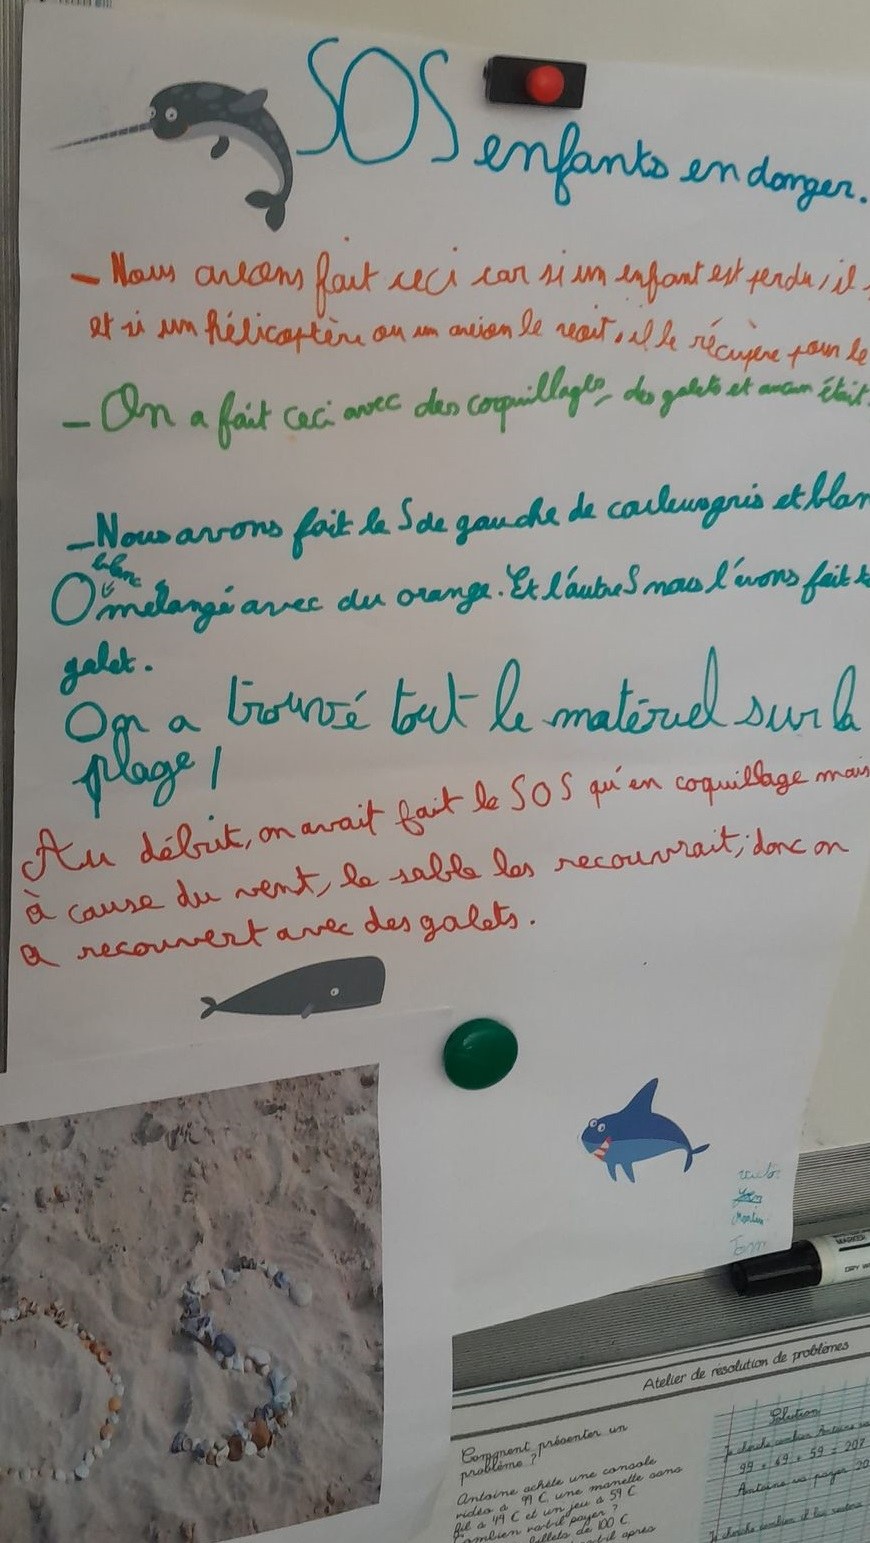 SOS enfants en danger.
- Nous avons fait ceci car si un enfant est perdu, il
et si un hélicoptère ou un avion le voit, il le récupère pour le
- On a fait ceci avec des coquillages, des galets et aucun était
- Nous avons fait le S de gauche de couleur gris et blan
blanc
O mélangé avec du orange. Et l'autre S nous l'avons fait
galet.
On a trouvé tout le matériel sur la
plage !
Au début, on avait fait le SOS qu'en coquillage mais
à cause du vent, le sable les recouvrait, donc on
a recouvert avec des galets.
Martin
Tom
MARKER
DRY W
Atelier de résolution de problèmes
Comment présenter un
problème ?
Antoine achète une console
vidéo à 99 € une manette sans
fil à 49 € et un jeu à 59 €
Combien va-t-il payer ?
billets de 100 €
-t-il après
Solution
Je cherche combien Antoine va
99 + 49 + 59 = 207
Antoine va payer 20
Je cherche combien il lui restera